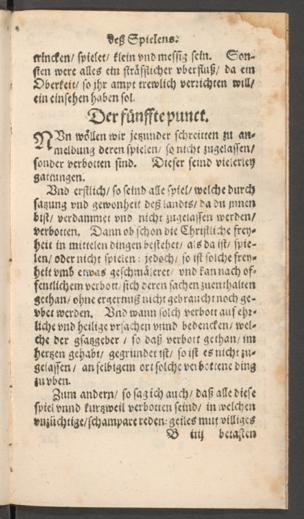 deß Spielens.
trincken/ spielet/ klein vnd messig sein. Son-
sten were alles ein sträfflicher vberfluß/ da ein
Oberkeit/ so jhr ampt trewlich verrichten will/
ein einsehen haben sol.
Der fünffte punct.
NVn wöllen wir jetzunder schreitten zu an-
meldung deren spielen/ so nicht zugelassen/
sonder verbotten sind. Dieser seind vielerley
gattungen.
Vnd erstlich/ so seind alle spiel/ welche durch
satzung vnd gewonheit deß landts/ da du jnnen
bist/ verdammet vnd nicht zugelassen werden/
verbotten. Dann ob schon die Christliche frey-
heit in mittelen dingen bestehet/ als da ist/ spie-
len/ oder nicht spielen: jedoch/ so ist solche frey-
heit vmb etwas geschmäleret/ vnd kan nach of-
fentlichem verbott/ sich deren sachen zuenthalten
gethan/ ohne ergernuß nicht gebraucht noch ge-
vbet werden. Vnd wann solch verbott auf ehr-
liche vnd heilige vrsachen vnnd bedencken/ wel-
che der gsatzgeber/ so daß verbott gethan/ im
hertzen gehabt/ gegrundet ist/ so ist es nicht zu-
gelassen/ an selbigem ort solche verbottene ding
zu vben.
Zum andern/ so sag ich auch/ daß alle diese
spiel vnnd kurzweil verbotten seind/ in welchen
vnzüchtige/ schampare reden: geiles mutwilliges
B iiij betasten